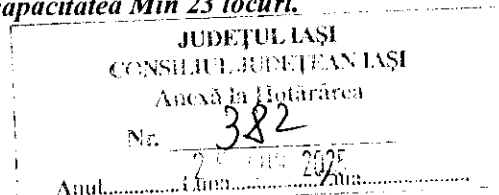 capacitatea Min 23 locuri.
JUDEŢUL IAŞI
CONSILIUL JUDEŢEAN IAŞI
Anexă la Hotărârea
Nr. 382
2025
Anul............Luna............Ziua............